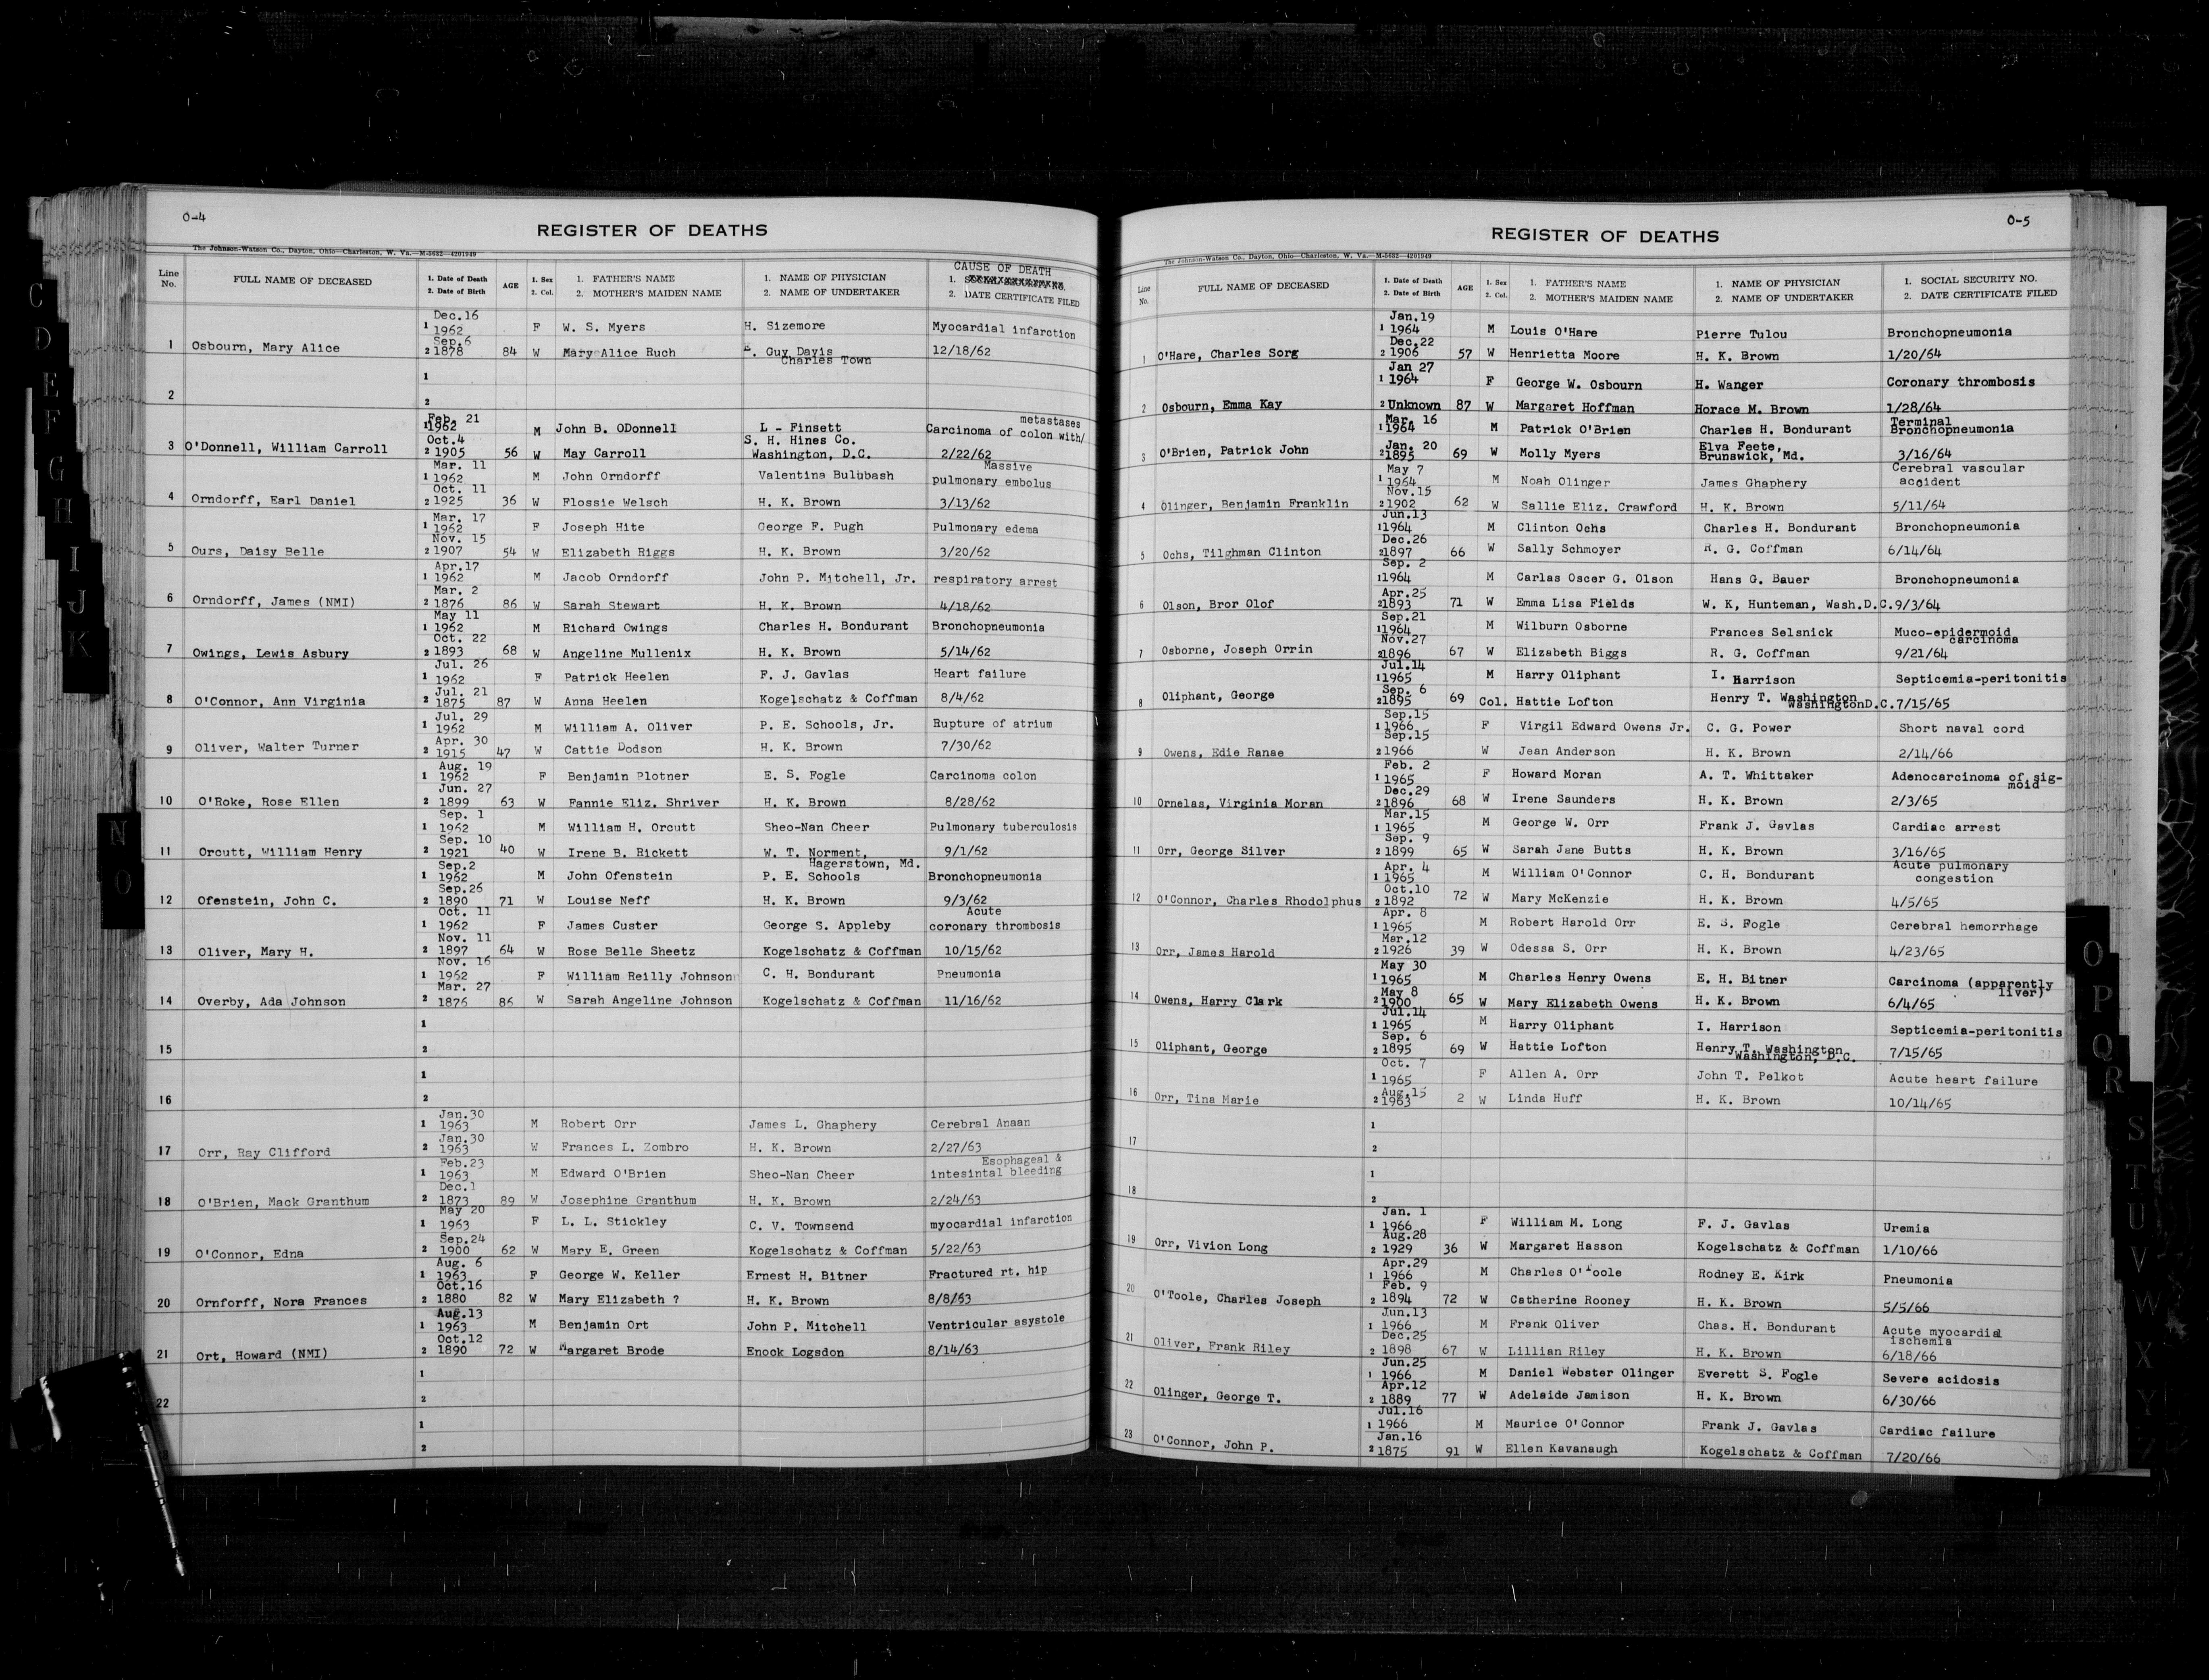 O-4
REGISTER OF DEATHS
The Johnson-Watson Co., Dayton, Ohio—Charleston, W. Va.—M-5632—4201949
Line No. FULL NAME OF DECEASED 1. Date of Death 2. Date of Birth AGE 1. Sex 2. Col. 1. FATHER'S NAME 2. MOTHER'S MAIDEN NAME 1. NAME OF PHYSICIAN 2. NAME OF UNDERTAKER CAUSE OF DEATH 1. 2. DATE CERTIFICATE FILED
Dec.16
1 1962 F W. S. Myers H. Sizemore Myocardial infarction
Sep.6
1 Osbourn, Mary Alice 2 1878 84 W Mary Alice Ruch E. Guy Davis 12/18/62
Charles Town
1
2 2
Feb. 21 metastases
1 1962 M John B. ODonnell L - Finsett Carcinoma of colon with/
Oct.4 S. H. Hines Co.
3 O'Donnell, William Carroll 2 1905 56 W May Carroll Washington, D.C. 2/22/62
Mar. 11 Massive
1 1962 M John Orndorff Valentina Bulubash pulmonary embolus
Oct. 11
4 Orndorff, Earl Daniel 2 1925 36 W Flossie Welsch H. K. Brown 3/13/62
Mar. 17
1 1962 F Joseph Hite George F. Pugh Pulmonary edema
Nov. 15
5 Ours, Daisy Belle 2 1907 54 W Elizabeth Riggs H. K. Brown 3/20/62
Apr.17
1 1962 M Jacob Orndorff John P. Mitchell, Jr. respiratory arrest
Mar. 2
6 Orndorff, James (NMI) 2 1876 86 W Sarah Stewart H. K. Brown 4/18/62
May 11
1 1962 M Richard Owings Charles H. Bondurant Bronchopneumonia
Oct. 22
7 Owings, Lewis Asbury 2 1893 68 W Angeline Mullenix H. K. Brown 5/14/62
Jul. 26
1 1962 F Patrick Heelen F. J. Gavlas Heart failure
Jul. 21
8 O'Connor, Ann Virginia 2 1875 87 W Anna Heelen Kogelschatz & Coffman 8/4/62
Jul. 29
1 1962 M William A. Oliver P. E. Schools, Jr. Rupture of atrium
Apr. 30
9 Oliver, Walter Turner 2 1915 47 W Cattie Dodson H. K. Brown 7/30/62
Aug. 19
1 1962 F Benjamin Plotner E. S. Fogle Carcinoma colon
Jun. 27
10 O'Roke, Rose Ellen 2 1899 63 W Fannie Eliz. Shriver H. K. Brown 8/28/62
Sep. 1
1 1962 M William H. Orcutt Sheo-Nan Cheer Pulmonary tuberculosis
Sep. 10
11 Orcutt, William Henry 2 1921 40 W Irene B. Rickett W. T. Norment, 9/1/62
Sep.2 Hagerstown, Md.
1 1962 M John Ofenstein P. E. Schools Bronchopneumonia
Sep.26
12 Ofenstein, John C. 2 1890 71 W Louise Neff H. K. Brown 9/3/62
Oct. 11 Acute
1 1962 F James Custer George S. Appleby coronary thrombosis
Nov. 11
13 Oliver, Mary H. 2 1897 64 W Rose Belle Sheetz Kogelschatz & Coffman 10/15/62
Nov. 16
1 1962 F William Reilly Johnson C. H. Bondurant Pneumonia
Mar. 27
14 Overby, Ada Johnson 2 1876 86 W Sarah Angeline Johnson Kogelschatz & Coffman 11/16/62
1
15 2
1
16 2
Jan.30
1 1963 M Robert Orr James L. Ghaphery Cerebral Anaan
Jan.30
17 Orr, Ray Clifford 2 1963 W Frances L. Zombro H. K. Brown 2/27/63
Feb.23 Esophageal &
1 1963 M Edward O'Brien Sheo-Nan Cheer intesintal bleeding
Dec.1
18 O'Brien, Mack Granthum 2 1873 89 W Josephine Granthum H. K. Brown 2/24/63
May 20
1 1963 F L. L. Stickley C. V. Townsend myocardial infarction
Sep.24
19 O'Connor, Edna 2 1900 62 W Mary E. Green Kogelschatz & Coffman 5/22/63
Aug. 6
1 1963 F George W. Keller Ernest H. Bitner Fractured rt. hip
Oct.16
20 Ornforff, Nora Frances 2 1880 82 W Mary Elizabeth ? H. K. Brown 8/8/63
Aug.13
1 1963 M Benjamin Ort John P. Mitchell Ventricular asystole
Oct.12
21 Ort, Howard (NMI) 2 1890 72 W Margaret Brode Enock Logsdon 8/14/63
1
22 2
1
2
O-5
REGISTER OF DEATHS
The Johnson-Watson Co., Dayton, Ohio—Charleston, W. Va.—M-5632—4201949
Line No. FULL NAME OF DECEASED 1. Date of Death 2. Date of Birth AGE 1. Sex 2. Col. 1. FATHER'S NAME 2. MOTHER'S MAIDEN NAME 1. NAME OF PHYSICIAN 2. NAME OF UNDERTAKER 1. SOCIAL SECURITY NO. 2. DATE CERTIFICATE FILED
Jan.19
1 1964 M Louis O'Hare Pierre Tulou Bronchopneumonia
Dec.22
1 O'Hare, Charles Sorg 2 1906 57 W Henrietta Moore H. K. Brown 1/20/64
Jan 27
1 1964 F George W. Osbourn H. Wanger Coronary thrombosis
2 Osbourn, Emma Kay 2 Unknown 87 W Margaret Hoffman Horace M. Brown 1/28/64
Mar. 16 Terminal
1 1964 M Patrick O'Brien Charles H. Bondurant Bronchopneumonia
Jan. 20 Elva Feete,
3 O'Brien, Patrick John 2 1895 69 W Molly Myers Brunswick, Md. 3/16/64
May 7 Cerebral vascular
1 1964 M Noah Olinger James Ghaphery accident
Nov.15
4 Olinger, Benjamin Franklin 2 1902 62 W Sallie Eliz. Crawford H. K. Brown 5/11/64
Jun.13
1 1964 M Clinton Ochs Charles H. Bondurant Bronchopneumonia
Dec.26
5 Ochs, Tilghman Clinton 2 1897 66 W Sally Schmoyer R. G. Coffman 6/14/64
Sep. 2
1 1964 M Carlas Oscer G. Olson Hans G. Bauer Bronchopneumonia
Apr.25
6 Olson, Bror Olof 2 1893 71 W Emma Lisa Fields W. K, Hunteman, Wash.D.C. 9/3/64
Sep.21
1 1964 M Wilburn Osborne Frances Selsnick Muco-epidermoid
Nov.27 carcinoma
7 Osborne, Joseph Orrin 2 1896 67 W Elizabeth Biggs R. G. Coffman 9/21/64
Jul.14
1 1965 M Harry Oliphant I. Harrison Septicemia-peritonitis
Sep. 6
8 Oliphant, George 2 1895 69 Col. Hattie Lofton Henry T. Washington
WashingtonD.C. 7/15/65
Sep.15
1 1966 F Virgil Edward Owens Jr. C. G. Power Short naval cord
Sep.15
9 Owens, Edie Ranae 2 1966 W Jean Anderson H. K. Brown 2/14/66
Feb. 2
1 1965 F Howard Moran A. T. Whittaker Adenocarcinoma of sig-
Dec.29 moid
10 Ornelas, Virginia Moran 2 1896 68 W Irene Saunders H. K. Brown 2/3/65
Mar.15
1 1965 M George W. Orr Frank J. Gavlas Cardiac arrest
Sep. 9
11 Orr, George Silver 2 1899 65 W Sarah Jane Butts H. K. Brown 3/16/65
Apr. 4 Acute pulmonary
1 1965 M William O'Connor C. H. Bondurant congestion
Oct.10
12 O'Connor, Charles Rhodolphus 2 1892 72 W Mary McKenzie H. K. Brown 4/5/65
Apr. 8
1 1965 M Robert Harold Orr E. S. Fogle Cerebral hemorrhage
Mar.12
13 Orr, James Harold 2 1926 39 W Odessa S. Orr H. K. Brown 4/23/65
May 30
1 1965 M Charles Henry Owens E. H. Bitner Carcinoma (apparently
May 8 liver)
14 Owens, Harry Clark 2 1900 65 W Mary Elizabeth Owens H. K. Brown 6/4/65
Jul.14
1 1965 M Harry Oliphant I. Harrison Septicemia-peritonitis
Sep. 6
15 Oliphant, George 2 1895 69 W Hattie Lofton Henry T. Washington 7/15/65
Washington, D.C.
Oct. 7
1 1965 F Allen A. Orr John T. Pelkot Acute heart failure
Aug.15
16 Orr, Tina Marie 2 1963 2 W Linda Huff H. K. Brown 10/14/65
1
17 2
1
18 2
Jan. 1
1 1966 F William M. Long F. J. Gavlas Uremia
Aug.28
19 Orr, Vivion Long 2 1929 36 W Margaret Hasson Kogelschatz & Coffman 1/10/66
Apr.29
1 1966 M Charles O'Toole Rodney E. Kirk Pneumonia
Feb. 9
20 O'Toole, Charles Joseph 2 1894 72 W Catherine Rooney H. K. Brown 5/5/66
Jun.13
1 1966 M Frank Oliver Chas. H. Bondurant Acute myocardial
Dec.25 ischemia
21 Oliver, Frank Riley 2 1898 67 W Lillian Riley H. K. Brown 6/18/66
Jun.25
1 1966 M Daniel Webster Olinger Everett S. Fogle Severe acidosis
Apr.12
22 Olinger, George T. 2 1889 77 W Adelaide Jamison H. K. Brown 6/30/66
Jul.16
1 1966 M Maurice O'Connor Frank J. Gavlas Cardiac failure
Jan.16
23 O'Connor, John P. 2 1875 91 W Ellen Kavanaugh Kogelschatz & Coffman 7/20/66
C
D
E
F
G
H
I
J
K
N
O
O
P
Q
R
S
T
U
V
W
X
Y